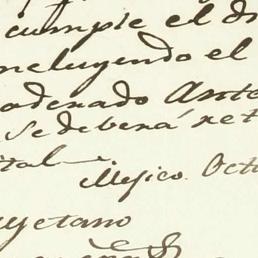 cumple el d
ncluyendo el
ordenado Ante
se deberá ret
ital
Mejico. Octu
ayetano